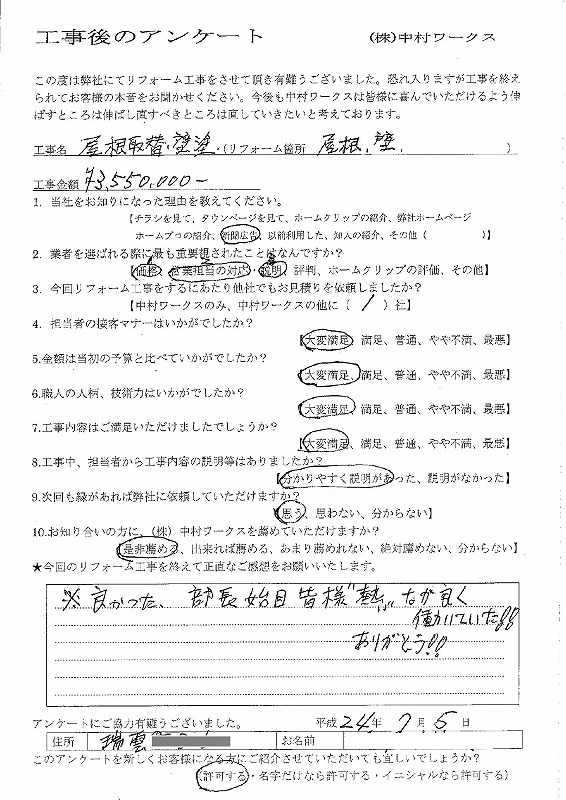 工事後のアンケート (株)中村ワークス
この度は弊社にてリフォーム工事をさせて頂き有難うございました。恐れ入りますが工事を終え
られてお客様の本音をお聞かせください。今後も中村ワークスは皆様に喜んでいただけるよう伸
ばすところは伸ばし直すべきところは直していきたいと考えております。
工事名 屋根取替・壁塗・(リフォーム箇所 屋根,壁. )
工事金額 ¥3,550,000-
1. 当社をお知りになった理由を教えてください。
【チラシを見て、タウンページを見て、ホームクリップの紹介、弊社ホームページ
ホームプロの紹介、新聞広告、以前利用した、知人の紹介、その他( )】
2. 業者を選ばれる際に最も重要想されたことはなんですか?
【価格、営業担当の対応・説明、評判、ホームクリップの評価、その他】
3. 今回リフォーム工事をするにあたり他社でもお見積りを依頼しましたか?
【中村ワークスのみ、中村ワークスの他に( / )社】
4. 担当者の接客マナーはいかがでしたか?
【大変満足、満足、普通、やや不満、最悪】
5.金額は当初の予算と比べていかがでしたか?
【大変満足、満足、普通、やや不満、最悪】
6.職人の人柄、技術力はいかがでしたか?
【大変満足、満足、普通、やや不満、最悪】
7.工事内容はご満足いただけましたでしょうか?
【大変満足、満足、普通、やや不満、最悪】
8.工事中、担当者から工事内容の説明等はありましたか?
【分かりやすく説明があった、説明がなかった】
9.次回も縁があれば弊社に依頼していただけますか?
【思う、思わない、分からない】
10.お知り合いの方に、(株)中村ワークスを薦めていただけますか?
【是非薦める、出来れば薦める、あまり薦めれない、絶対薦めない、分からない】
★今回のリフォーム工事を終えて正直なご感想をお願いいたします。
※良かった、部長始目皆様“熱”なが良く
働いていた!!
ありがとう!!
アンケートにご協力有難うございました。 平成24年7月5日
住所 瑞雲 お名前
このアンケートを新しくお客様になる方にご紹介させていただいても宜しいでしょうか?
(許可する・名字だけなら許可する・イニシャルなら許可する)